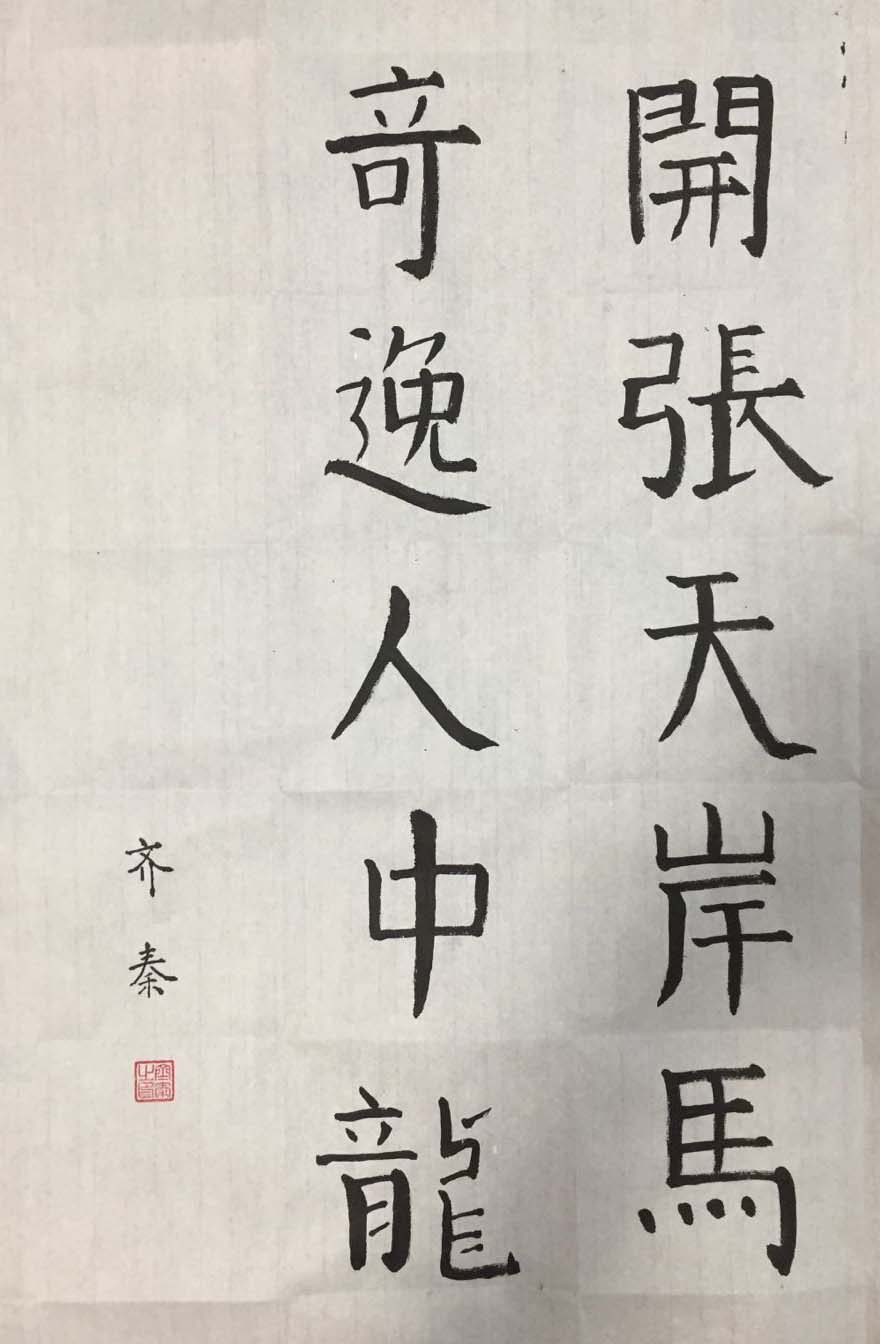 開張天岸馬
竒逸人中龍
齐秦